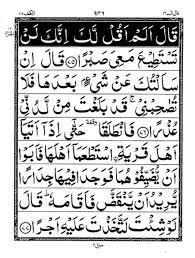 قَالَ اَلَمْ اَقُلْ لَّكَ اِنَّكَ لَنْ
تَسْتَطِيْعَ مَعِيَ صَبْرًا ﴿٧٥﴾ قَالَ اِنْ
سَاَلْتُكَ عَنْ شَيْءٍۭ بَعْدَهَا فَلَا
تُصٰحِبْنِيْ ۚ قَدْ بَلَغْتَ مِنْ لَّدُنِّيْ
عُذْرًا ﴿٧٦﴾ فَانْطَلَقَا ۥ وقفة حَتّٰۤى اِذَاۤ اَتَيَاۤ
اَهْلَ قَرْيَةِ اِ۟سْتَطْعَمَاۤ اَهْلَهَا فَاَبَوْا
اَنْ يُّضَيِّفُوْهُمَا فَوَجَدَا فِيْهَا جِدَارًا
يُّرِيْدُ اَنْ يَّنْقَضَّ فَاَقَامَهٗ ؕ قَالَ
لَوْ شِئْتَ لَتَّخَذْتَ عَلَيْهِ اَجْرًا ﴿٧٧﴾